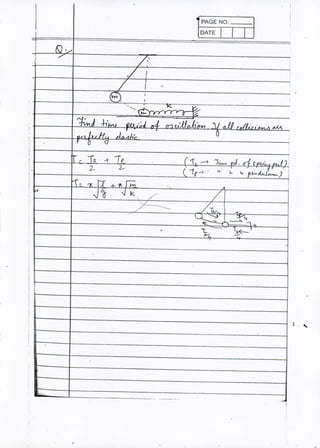 PAGE NO.
DATE
Q.
m
K
m
Find time period of oscillation. If all collisions are
perfectly elastic
T = Ts/2 + Tp/2 (Ts → Time pd. of spring part)
(Tp → " " " pendulum)
T = π√(l/g) + π√(m/k)